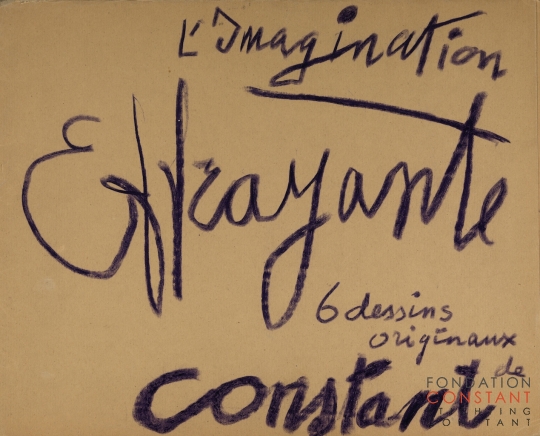 L'Imagination
Effrayante
6 dessins
originaux
de
constant
FONDATION
CONSTANT
STICHTING
CONSTANT